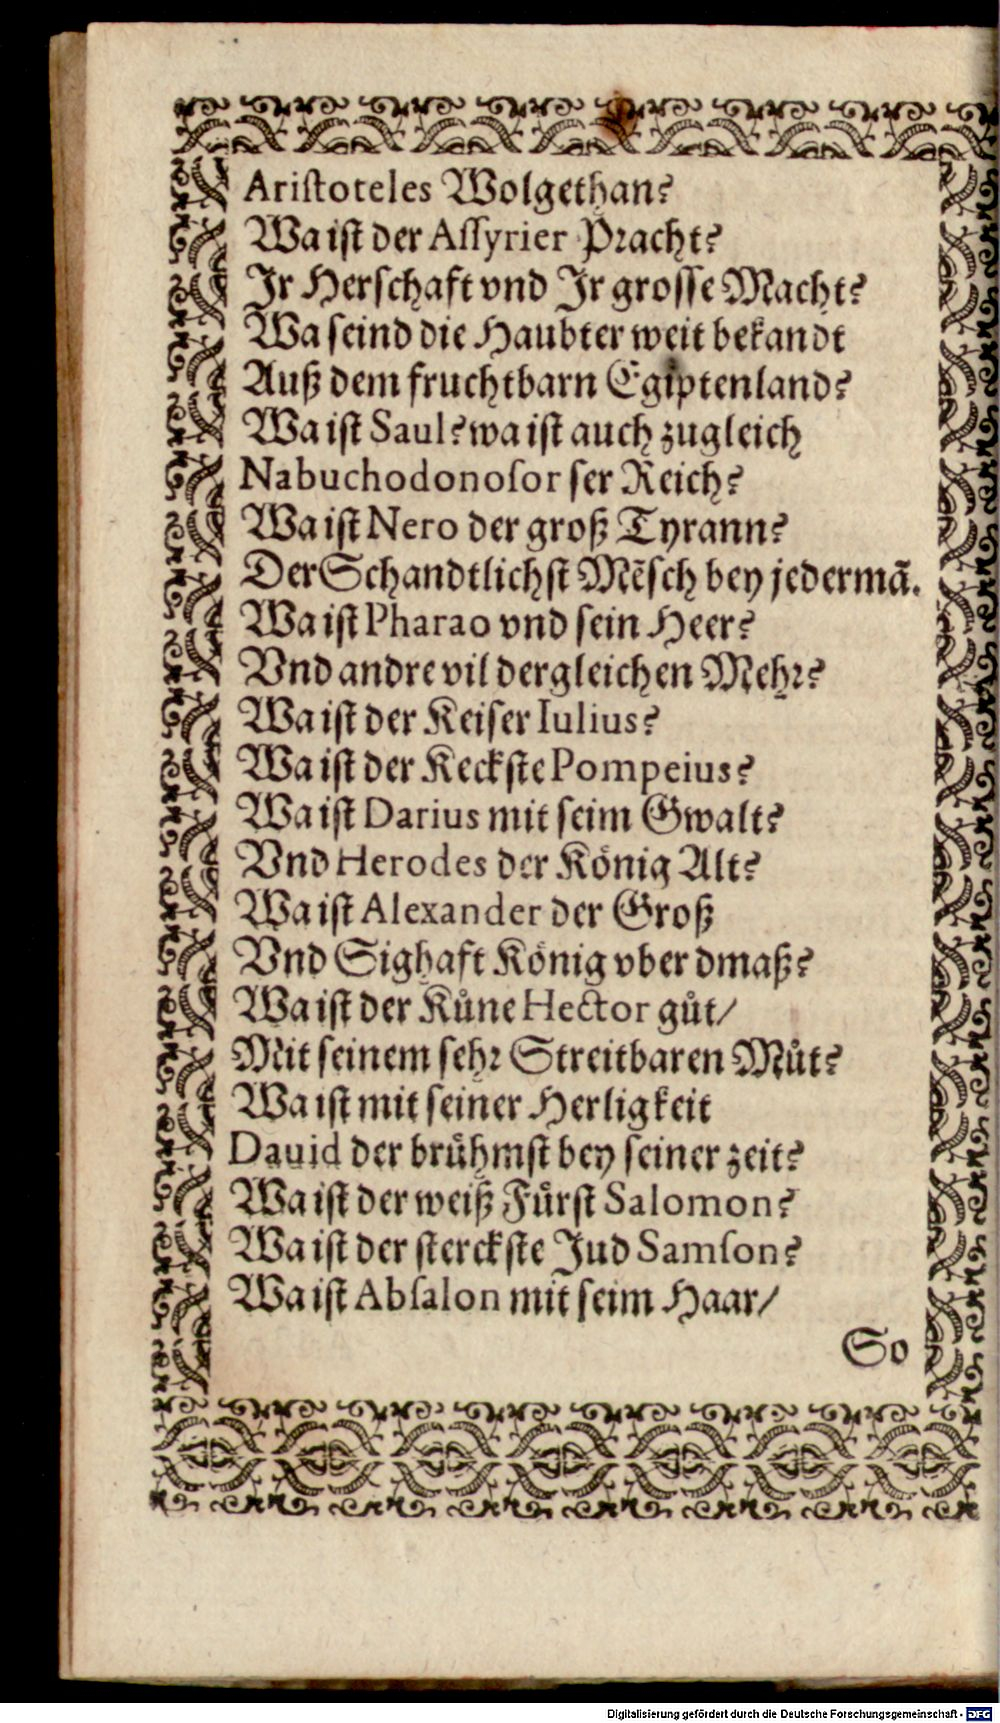 Ariſtoteles Wolgethan?
Wa iſt der Aſſyrier Pracht?
Jr Herſchaft vnd Jr groſſe Macht?
Wa ſeind die Haubter weit bekandt
Auß dem fruchtbarn Egiptenland?
Wa iſt Saul? wa iſt auch zugleich
Nabuchodonoſor ſer Reich?
Wa iſt Nero der groß Tyrann?
Der Schandtlichſt Mẽſch bey jedermã.
Wa iſt Pharao vnd ſein Heer?
Vnd andre vil dergleichen Mehr?
Wa iſt der Keiſer Iulius?
Wa iſt der Keckſte Pompeius?
Wa iſt Darius mit ſeim Gwalt?
Vnd Herodes der König Alt?
Wa iſt Alexander der Groß
Vnd Sighaft König vber dmaß?
Wa iſt der Kuͤne Hector guͦt/
Mit ſeinem ſehr Streitbaren Muͦt?
Wa iſt mit ſeiner Herligkeit
Dauid der bruͤhmſt bey ſeiner zeit?
Wa iſt der weiß Fuͤrſt Salomon?
Wa iſt der ſterckſte Jud Samſon?
Wa iſt Abſalon mit ſeim Haar/
So
Digitalisierung gefördert durch die Deutsche Forschungsgemeinschaft - DFG